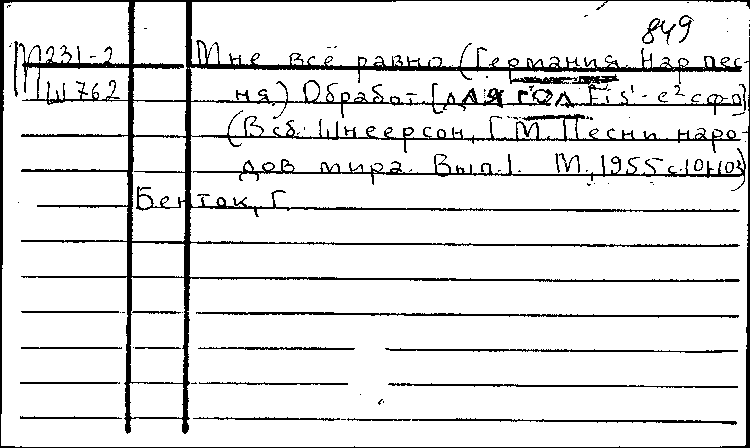 849
М231-2 Мне всё равно (Германия. Нар. пес-
Ш762 ня.) Обработ. [для гол. Fis¹-e² с ф-п]
(В сб.: Шнеерсон, Г.М. Песни наро-
дов мира. Вып.1. М., 1955 с.101-103)
Бенток, Г.